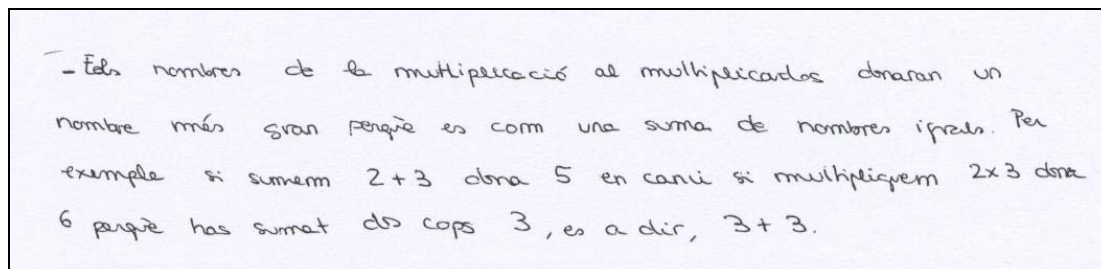 - Els nombres de la multiplicació al multiplicarlos donaran un
nombre més gran perquè es com una suma de nombres iguals. Per
exemple si sumem 2+3 dona 5 en canvi si multipliquem 2x3 dona
6 perquè has sumat dos cops 3, es a dir, 3+3.